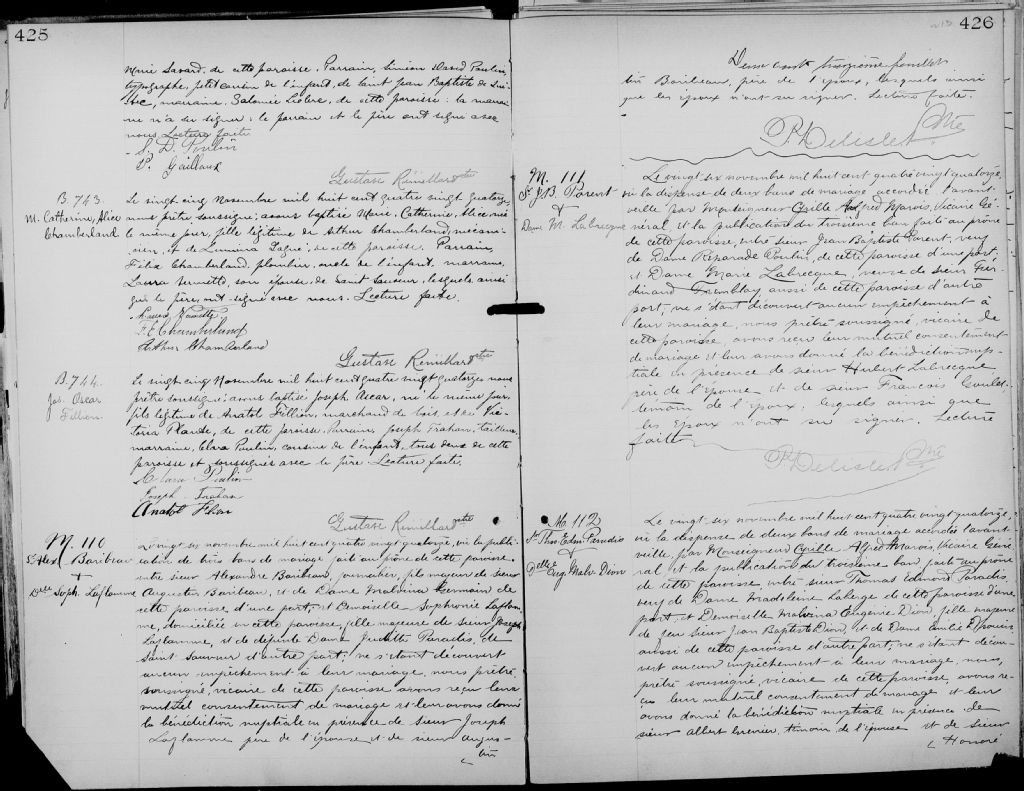 425
Marie Savard, de cette paroisse. Parrain, Siméon David Poulin,
typographe, petit cousin de l'enfant, de Saint Jean Baptiste de
marraine, Salomée de cette paroisse: la marrai-
ne n'a su signer: le parrain et le père ont signé avec
nous. Lecture faite
S. D. Poulin
P. Gaillaux
Gustave Rémillard ptre
B. 743.
M. Catherine, Alice
Chamberland
Le vingt cinq Novembre mil huit cent quatre vingt quatorze,
nous prêtre soussigné; avons baptisé Marie, Catherine, Alice, née
le même jour, fille légitime de Arthur Chamberland, mécani-
cien, et de Lumina de cette paroisse. Parrain,
Félix Chamberland, plombier, oncle de l'enfant, marraine,
Laura son épouse, de Saint Sauveur, lesquels, ainsi
que le père, ont signé avec nous. Lecture faite.
Laura
F. E Chamberland
Arthur Chamberland
Gustave Rémillard ptre
B. 744.
Jos. Oscar
Fillion
Le vingt cinq Novembre mil huit cent quatre vingt quatorze nous
prêtre soussigné; avons baptisé Joseph Oscar, né le même jour,
fils légitime de Anatol Fillion, marchand de bois, et de Vic-
toria Plande, de cette paroisse. Parrain, Joseph Trahan, tailleur,
marraine, Clara Poulin, cousine de l'enfant, tous deux de cette
paroisse et soussignés avec le père. Lecture faite.
Clara Poulin
Joseph Trahan
Anatol
Gustave Rémillard ptre
M. 110
Sr Alex Baribeau
+
Delle Soph. Laflamme
Le vingt six novembre mil huit cent quatre vingt quatorze, vu la publi-
cation de trois bans de mariage fait au prône de cette paroisse
entre sieur Alexandre Baribeau, journalier, fils majeur de sieur
Augustin Baribeau, et de Dame Malvina Germain de
cette paroisse, d'une part; et Demoiselle Sophronie Laflam-
me, domiciliée en cette paroisse, fille majeure de sieur Joseph
Laflamme, et de défunte Dame Judith Paradis, de
Saint Sauveur d'autre part; ne s'étant découvert
aucun empêchement à leur mariage, nous prêtre
soussigné, vicaire de cette paroisse avons reçu leur
mutuel consentement de mariage et leur avons donné
la bénédiction nuptiale en présence de sieur Joseph
Laflamme père de l'épouse et de sieur Augus-
tin
426
Deux cent treizième feuillet
tin Baribeau, père de l'époux, lesquels ainsi
que les époux n'ont su signer. Lecture faite.
P. Delisle Ptre
M. 111
Sr J.B. Parent
+
Dame M. Labrecque
Le vingt six novembre mil huit cent quatre vingt quatorze,
vu la dispense de deux bans de mariage accordée l'avant-
veille par Monseigneur Cyrille Alfred Marois, Vicaire Gé-
néral, et la publication du troisième ban faite au prône
de cette paroisse, entre sieur Jean Baptiste Parent, veuf
de Dame Réparade Poulin, de cette paroisse d'une part;
et Dame Marie Labrecque, veuve de sieur Fer-
dinand Tremblay aussi de cette paroisse d'autre
part; ne s'étant découvert aucun empêchement à
leur mariage, nous prêtre soussigné, vicaire de
cette paroisse, avons reçu leur mutuel consentement
de mariage et leur avons donné la bénédiction nup-
tiale en présence de sieur Hubert Labrecque
père de l'épouse et de sieur François Goulet
témoin de l'époux, lesquels ainsi que
les époux n'ont su signer. Lecture
faite
P. Delisle Ptre
M. 112
Sr Thos Edm Paradis
+
Delle Eug. Malv. Dion
Le vingt six novembre mil huit cent quatre vingt quatorze,
vu la dispense de deux bans de mariage accordée l'avant-
veille par Monseigneur Cyrille Alfred Marois, Vicaire Géné-
ral et la publication du troisième ban faite au prône
de cette paroisse entre sieur Thomas Edmond Paradis,
veuf de Dame Madeleine Laberge de cette paroisse d'une
part, et Demoiselle Malvina Eugénie Dion, fille majeure
de feu sieur Jean Baptiste Dion, et de Dame Émilie Drouin
aussi de cette paroisse d'autre part; ne s'étant décou-
vert aucun empêchement à leur mariage, nous,
prêtre soussigné, vicaire de cette paroisse, avons re-
çu leur mutuel consentement de mariage et leur
avons donné la bénédiction nuptiale en présence de
sieur Albert témoin de l'épouse et de sieur
Honoré